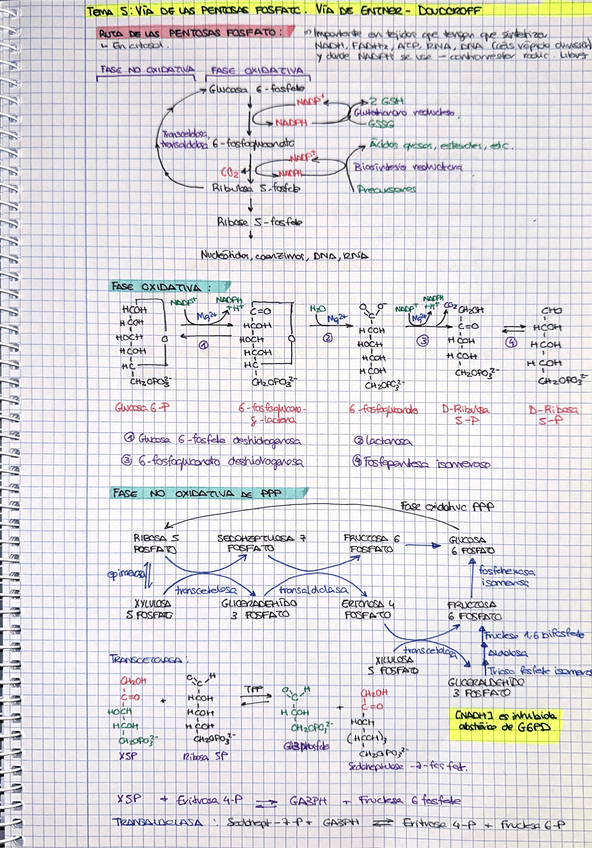 TEMA 5: VÍA DE LAS PENTOSAS FOSFATO. VÍA DE ENTNER - DOUDOROFF
RUTA DE LAS PENTOSAS FOSFATO:
↳ En citosol
Importante en tejidos que tengan que sintetizar
NADH, FADH2, ATP, RNA, DNA (céls rápida división)
y donde NADPH se use - contrarrestar radic. libres
FASE NO OXIDATIVA FASE OXIDATIVA
Glucosa 6-fosfato
NADP+ 2 GSH
Glutation reductasa
NADPH GSSG
Transcetolasa,
transaldolasa
6-fosfogluconato
Ácidos grasos, esteroles, etc.
NADP+
CO2 NADPH
Biosíntesis reductora
Ribulosa 5-fosfato Precursores
Ribosa 5-fosfato
Nucleótidos, coenzimas, DNA, RNA
FASE OXIDATIVA:
NADP+ NADPH +H+ Mg2+ ①
H2O Mg2+ ②
NADP+ NADPH +H+ CO2 Mg2+ ③
④
HCOH C=O CH2OH CHO
HCOH HCOH HCOH C=O HCOH
HOCH HOCH HOCH HCOH HCOH
HCOH HCOH HCOH HCOH HCOH
HC HC HCOH
CH2OPO3 2- CH2OPO3 2- CH2OPO3 2- CH2OPO3 2- CH2OPO3 2-
Glucosa 6-P 6-fosfoglucono- 6-fosfogluconato D-Ribulosa D-Ribosa
δ-lactona 5-P 5-P
① Glucosa 6-fosfato deshidrogenasa ② lactonasa
③ 6-fosfogluconato deshidrogenasa ④ Fosfopentosa isomerasa
FASE NO OXIDATIVA DE PPP
Fase oxidativa PPP
RIBOSA 5 SEDOHEPTULOSA 7 FRUCTOSA 6 GLUCOSA
FOSFATO FOSFATO FOSFATO 6 FOSFATO
epimerasa
transcetolasa transaldolasa
fosfohexosa
isomerasa
XYLULOSA GLICERALDEHIDO ERITROSA 4 FRUCTOSA
5 FOSFATO 3 FOSFATO FOSFATO 6 FOSFATO
Fructosa 1,6 bifosfato
transcetolasa
Aldolasa
XILULOSA
5 FOSFATO
Triosa fosfato isomerasa
GLICERALDEHIDO
3 FOSFATO
TRANSCETOLASA:
CH2OH CH2OH
C=O HCOH TPP HCOH C=O
HOCH + HCOH CH2OPO3 2- + HOCH
HCOH HCOH (HCOH)3
CH2OPO3 2- CH2OPO3 2- CH2OPO3 2-
X5P Ribosa 5P GA3Pfosfato Sedoheptulosa -7-fosfat.
[NADH] es inhibida
alostérica de
G6PD
X5P + Eritrosa 4-P ⇌ GA3PH + Fructosa 6 fosfato
TRANSALDOLASA: Sedohept-7-P + GA3PH ⇌ Eritrosa 4-P + Fructosa 6-P